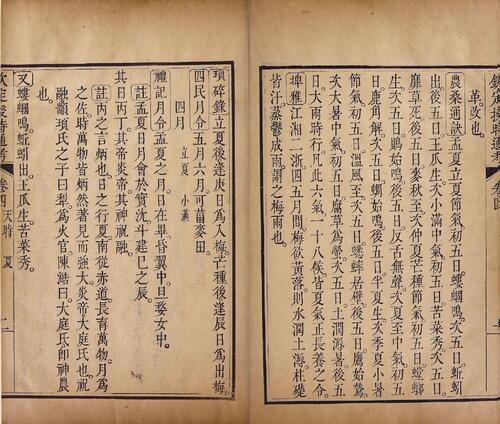 欽定授時通考 卷四
革改也。
農桑通訣孟夏立夏節氣初五日螻蟈鳴次五日蚯蚓
出後五日王瓜生次小滿中氣初五日苦菜秀次五日
靡草死後五日麥秋至次仲夏芒種節氣初五日螳螂
生次五日鵙始鳴後五日反舌無聲次夏至中氣初五
日鹿角解次五日蜩始鳴後五日半夏生次季夏小暑
節氣初五日溫風至次五日蟋蟀居壁後五日鷹始鷙
次大暑中氣初五日腐草為螢次五日土潤溽暑後五
日大雨時行凡此六氣一十八候皆夏氣正長養之令
埤雅江湘二浙四五月間梅欲黃落則水潤土溽柱礎
皆汗蒸鬱成雨謂之梅雨也。
瑣碎錄立夏後逢庚日為入梅芒種後逢辰日為出梅
四民月令五月六月可菑麥田。
四月 立夏 小滿
禮記月令孟夏之月日在畢昏翼中旦婺女中。
註孟夏日月會於實沈斗建巳之辰。
其日丙丁。其帝炎帝。其神祝融。
註丙之言炳也。日之行夏南從赤道。長育萬物。月為
之佐。時萬物皆炳然著見而強大。炎帝大庭氏也。祝
融顓頊氏之子曰犁為火官。陳澔曰大庭氏即神農
也。
又螻蟈鳴。蚯蚓出。王瓜生。苦菜秀。
欽定授時通考 卷四 天時 夏 二